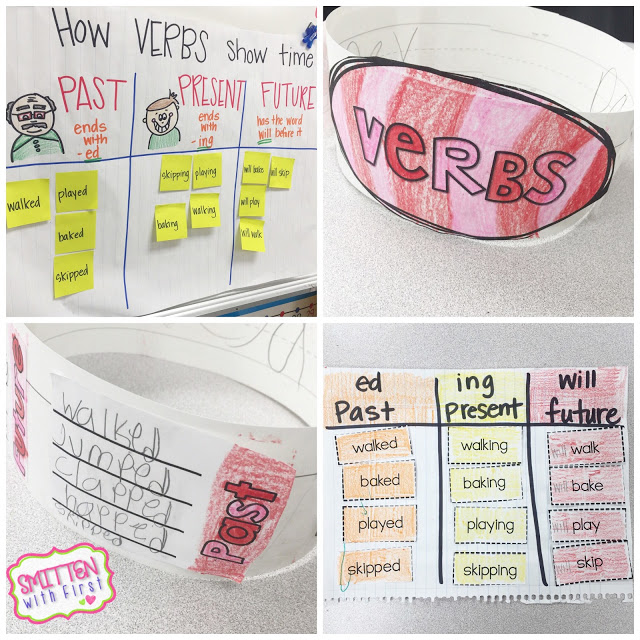 How VERBS show time
PAST
ends
with
-ed
walked
played
baked
skipped
PRESENT
ends
with
-ing
skipping
playing
baking
walking
FUTURE
has the word
will before it
will bake
will skip
will play
will walk
VERBS
walked
jumped
clapped
hopped
skipped
Past
SMITTEN
with First
ed
Past
walked
baked
played
skipped
ing
present
walking
baking
playing
skipping
will
future
will walk
will bake
will play
will skip